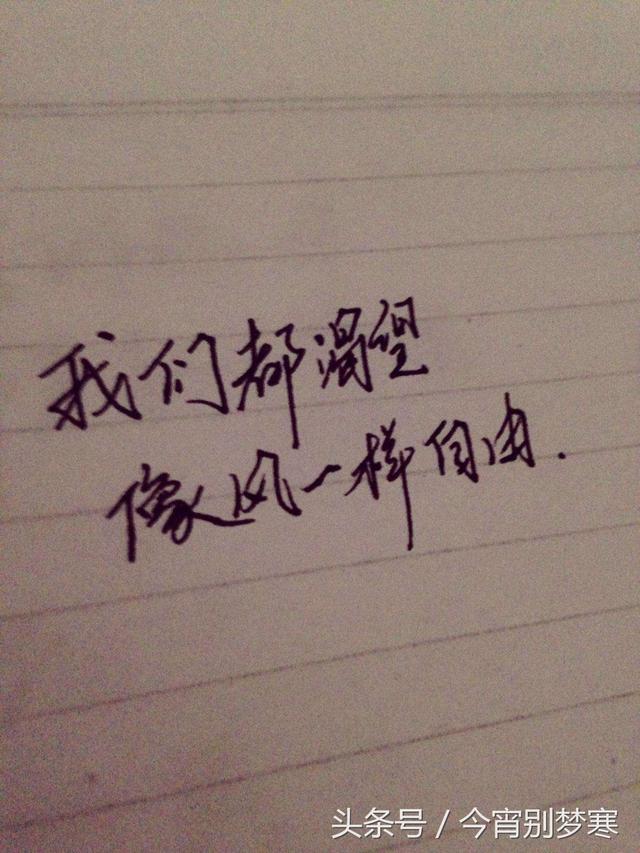 我们都渴望
像风一样自由.
头条号/今宵别梦寒